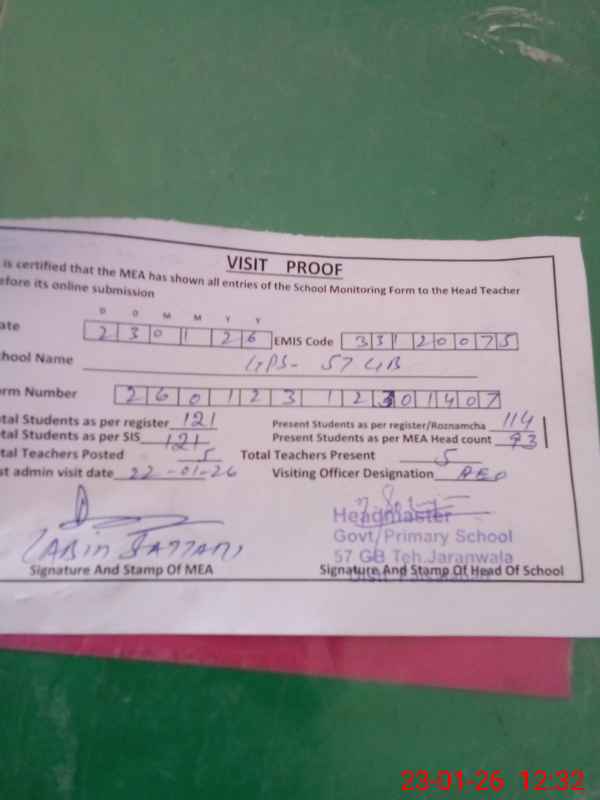 VISIT PROOF
is certified that the MEA has shown all entries of the School Monitoring Form to the Head Teacher
efore its online submission
D D M M Y Y
ate 2 3 0 1 2 6 EMIS Code 3 3 1 2 0 0 7 5
chool Name GPS- 57 GB
orm Number 2 6 0 1 2 3 1 2 3 0 1 4 0 7
tal Students as per register 121 Present Students as per register/Roznamcha 114
tal Students as per SIS 121 Present Students as per MEA Head count 93
tal Teachers Posted 5 Total Teachers Present 5
st admin visit date 22-01-26 Visiting Officer Designation AEO
Headmaster
Govt/Primary School
57 GB Teh.Jaranwala
Signature And Stamp Of MEA Signature And Stamp Of Head Of School
23-01-26 12:32